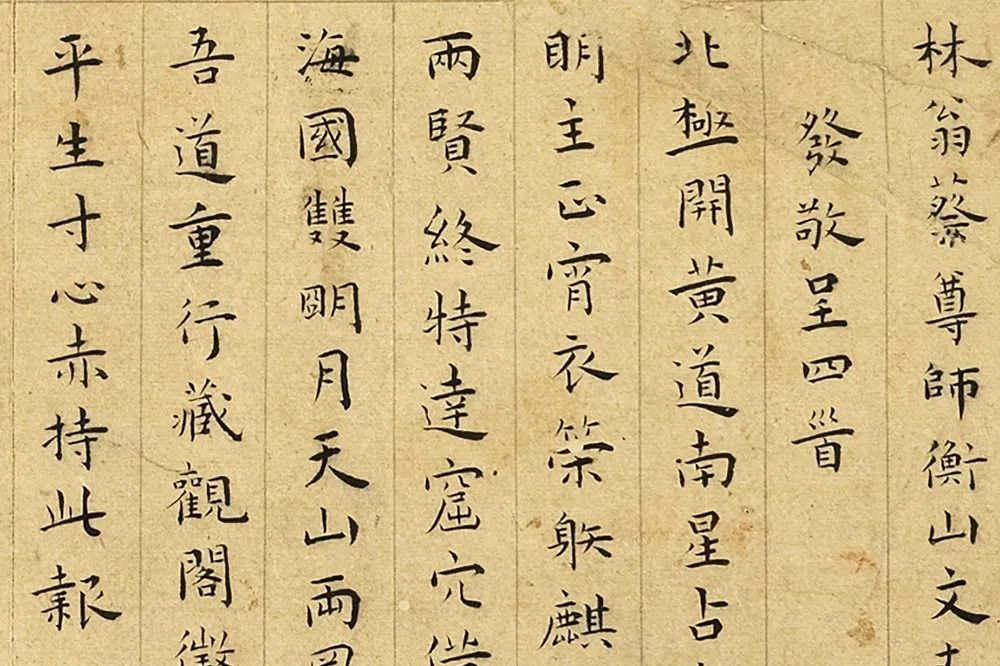 林翁蔡尊師衡山文
發敬呈四首
北極開黃道南星占
眀主正宵衣策䠶麒
兩賢終特達窟穴
海國雙朙月天山兩
吾道重行藏觀閣
平生寸心赤持此報